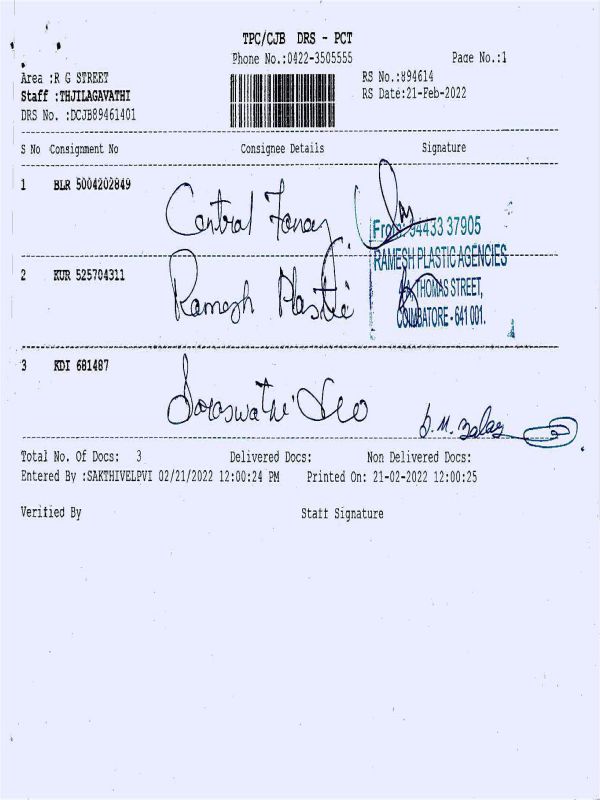 TPC/CJB DRS - PCT
Phone No.:0422-3505555 Page No.:1
Area :R G STREET RS No.:894614
Staff :THJILAGAVATHI RS Date:21-Feb-2022
DRS No. :DCJB89461401
S No Consignment No Consignee Details Signature
1 BLR 5004202849
Central
From: 94433 37905
RAMESH PLASTIC AGENCIES
2 KUR 525704311
Ramesh Plastic
THOMAS STREET,
COIMBATORE - 641 001.
3 KDI 681487
Saraswathi
Total No. Of Docs: 3 Delivered Docs: Non Delivered Docs:
Entered By :SAKTHIVELPVI 02/21/2022 12:00:24 PM Printed On: 21-02-2022 12:00:25
Verified By Staff Signature